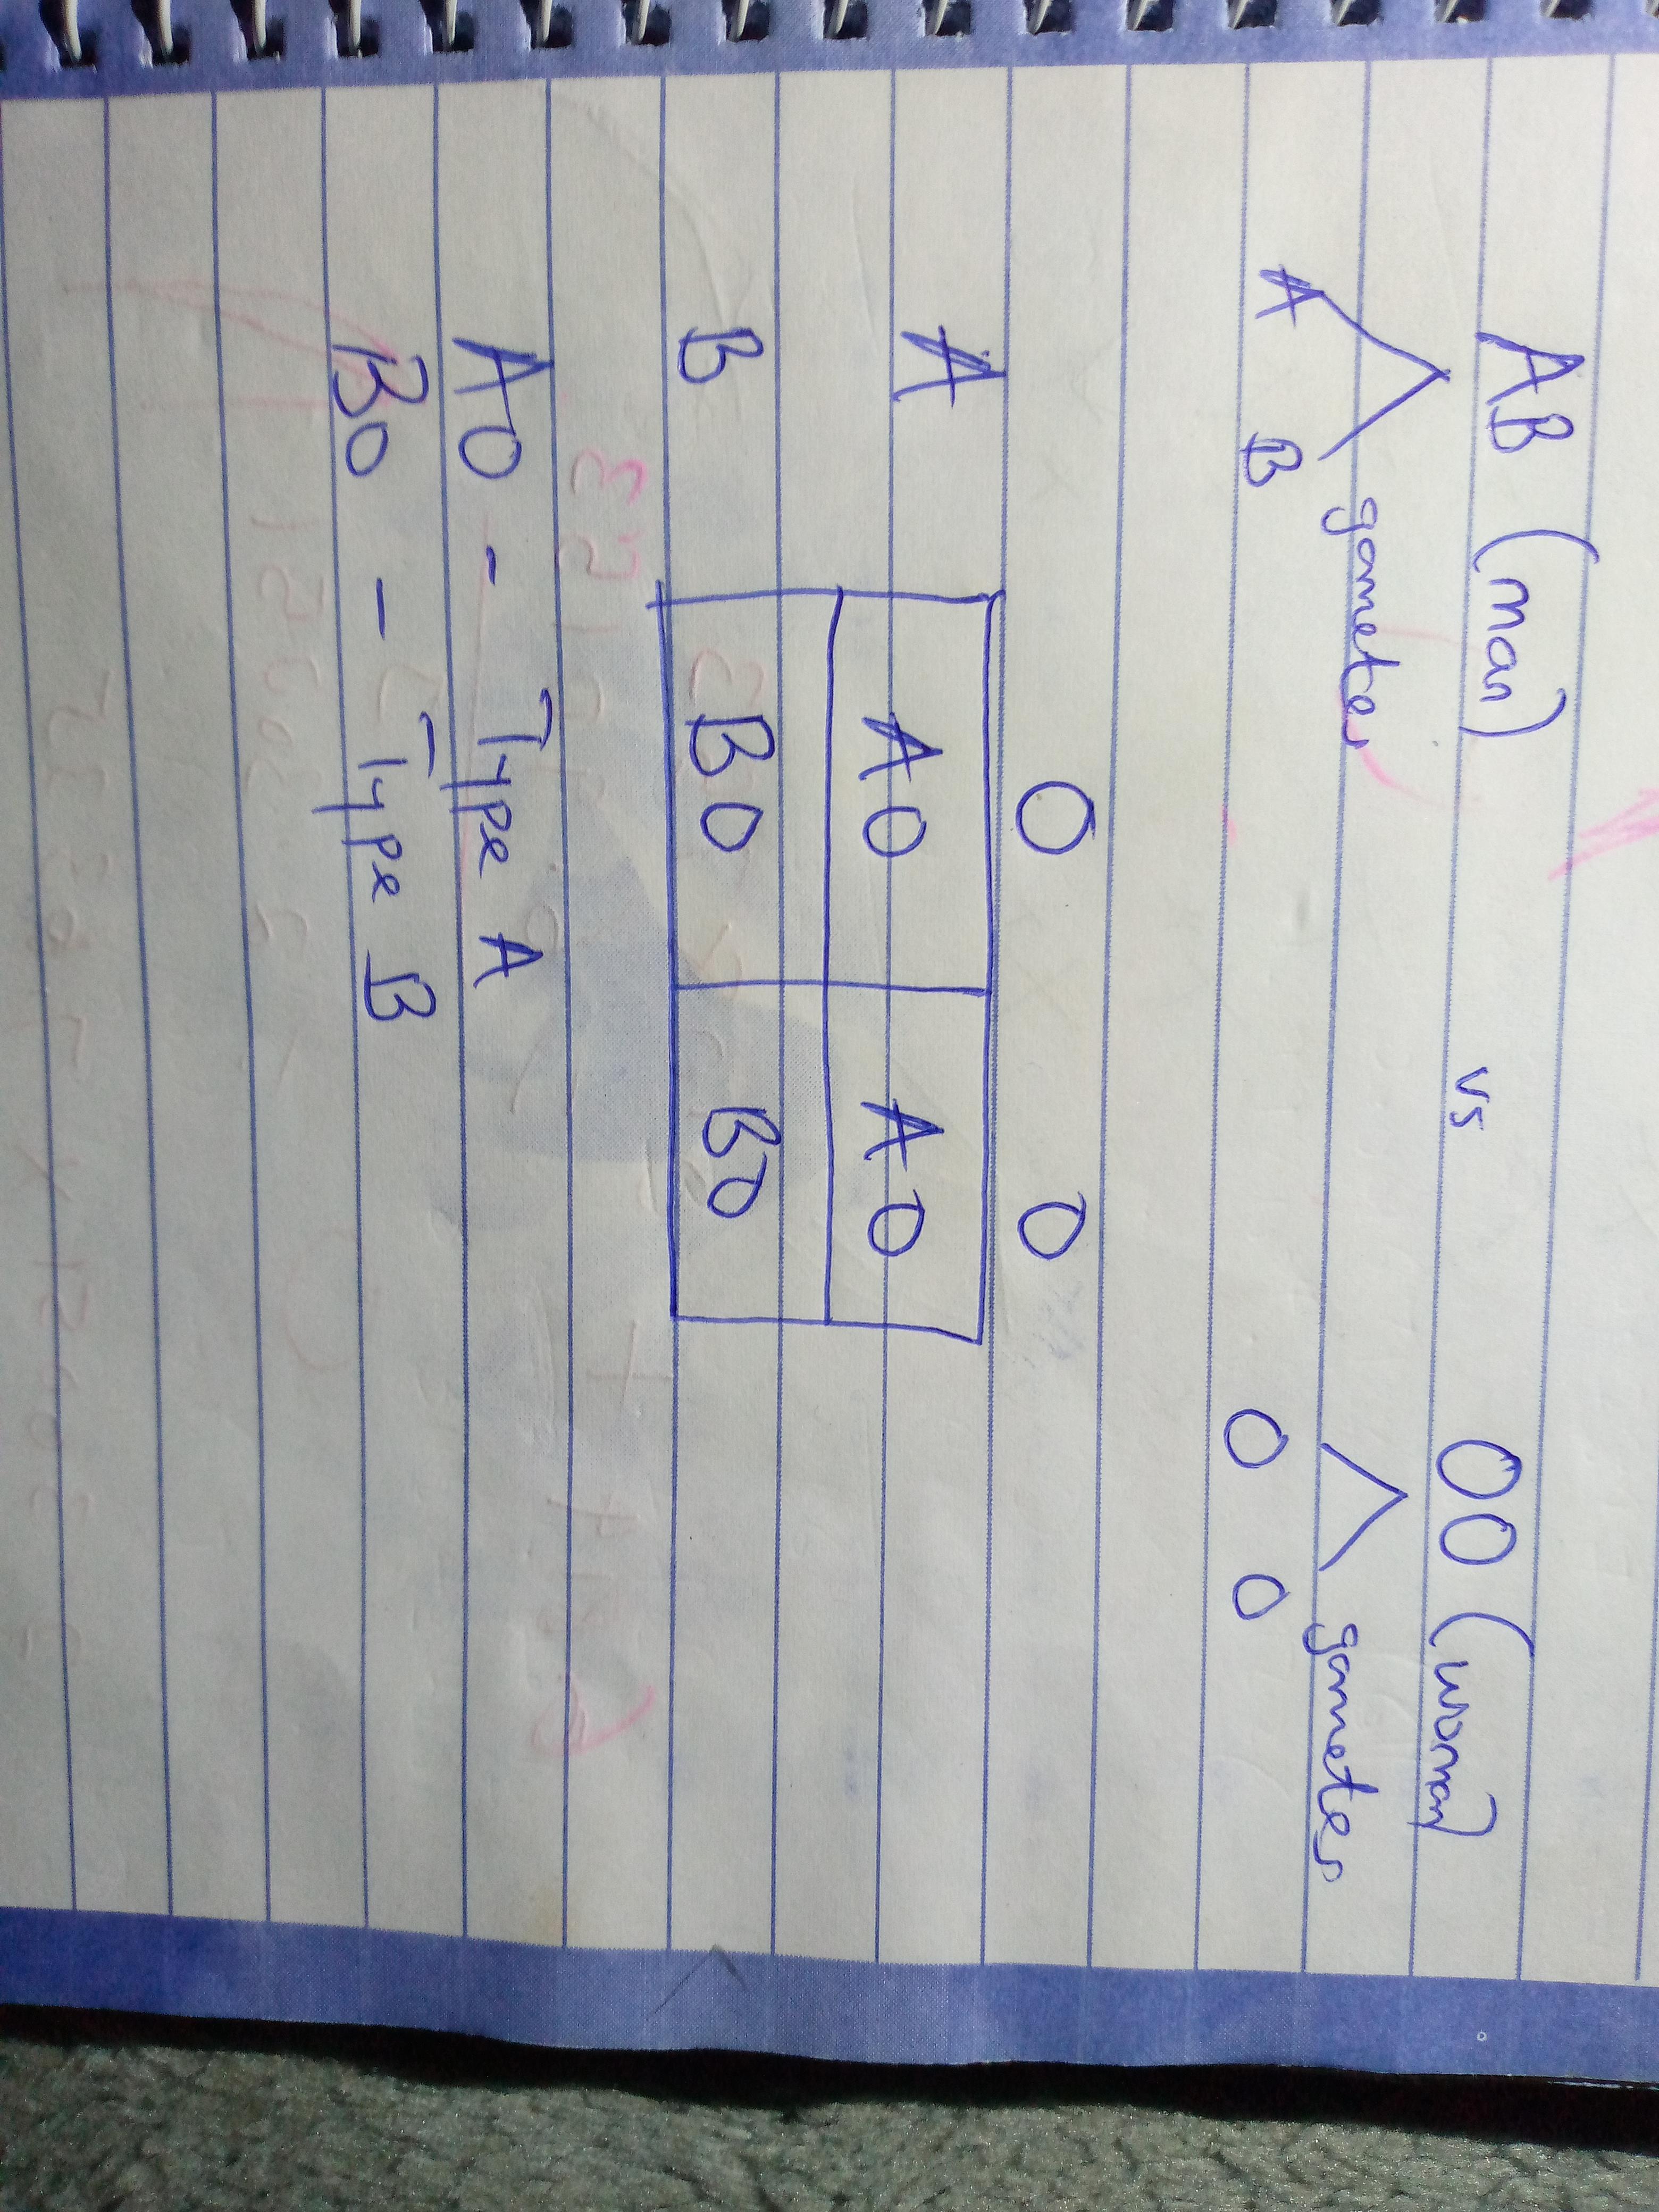 AB (man) vs OO (woman)
gametes gametes
A B O O
O O
A AO AO
B BO BO
AO - Type A
BO - Type B